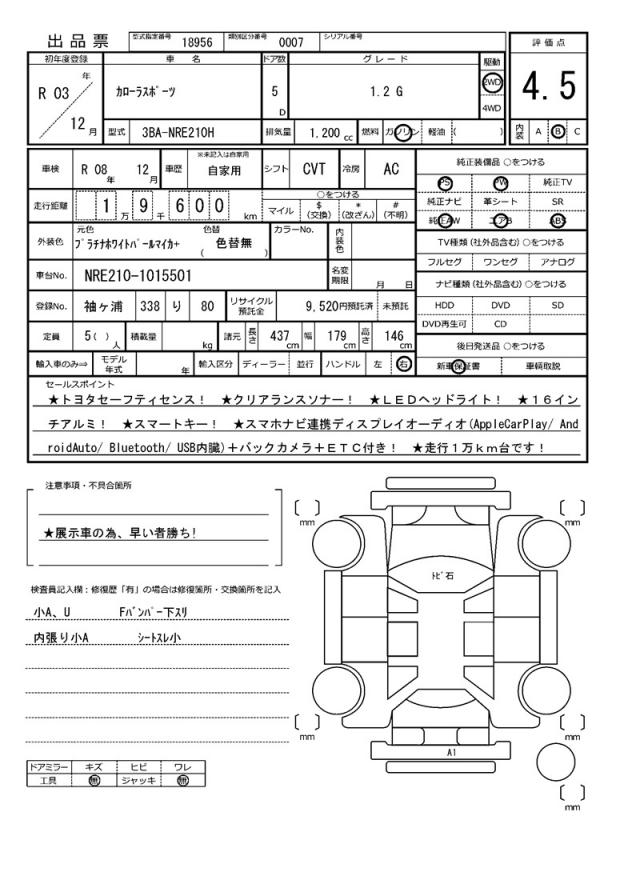 出品票 型式指定番号 18956 類別区分番号 0007 シリアル番号
評価点
4.5
内装 A B C
初年度登録 車名 ドア数 グレード 駆動
R 03 年 12 月
カローラスポーツ 5 D 1.2 G 2WD 4WD
型式 3BA-NRE210H 排気量 1.200 cc 燃料 ガソリン 軽油 ( )
車検 R 08 年 12 月 車歴 ※未記入は自家用 自家用 シフト CVT 冷房 AC
走行距離 1 万 9 千 6 0 0 km ○をつける
マイル $ (交換) * (改ざん) # (不明)
外装色 元色 プラチナホワイトパールマイカ+ 色替 ( 色替無 ) カラーNo. 内装色
車台No. NRE210-1015501 名変期限 月 日
登録No. 袖ヶ浦 338 り 80 リサイクル預託金 9,520円預託済 未預託
定員 5( ) 人 積載量 kg 諸元 長さ 437 cm 幅 179 cm 高さ 146 cm
輸入車のみ⇒ モデル年式 年 輸入区分 ディーラー 並行 ハンドル 左 右
純正装備品 ○をつける
PS PW 純正TV
純正ナビ 革シート SR
純正AW エアB ABS
TV種類 (社外品含む) ○をつける
フルセグ ワンセグ アナログ
ナビ種類 (社外品含む) ○をつける
HDD DVD SD
DVD再生可 CD
後日発送品 ○をつける
新車保証書 車輌取説
セールスポイント
★トヨタセーフティセンス! ★クリアランスソナー! ★LEDヘッドライト! ★16イン
チアルミ! ★スマートキー! ★スマホナビ連携ディスプレイオーディオ(AppleCarPlay/ And
roidAuto/ Bluetooth/ USB内臓)+バックカメラ+ETC付き! ★走行1万km台です!
注意事項・不具合箇所
★展示車の為、早い者勝ち!
検査員記入欄:修復歴「有」の場合は修復箇所・交換箇所を記入
小A、U Fバンパー下スリ
内張り小A シートスレ小
ドアミラー キズ ヒビ ワレ
工具 無 ジャッキ 無
[ ] mm
[ ] mm
トビ石
[ ] mm
[ ] mm
A1
[ ] mm